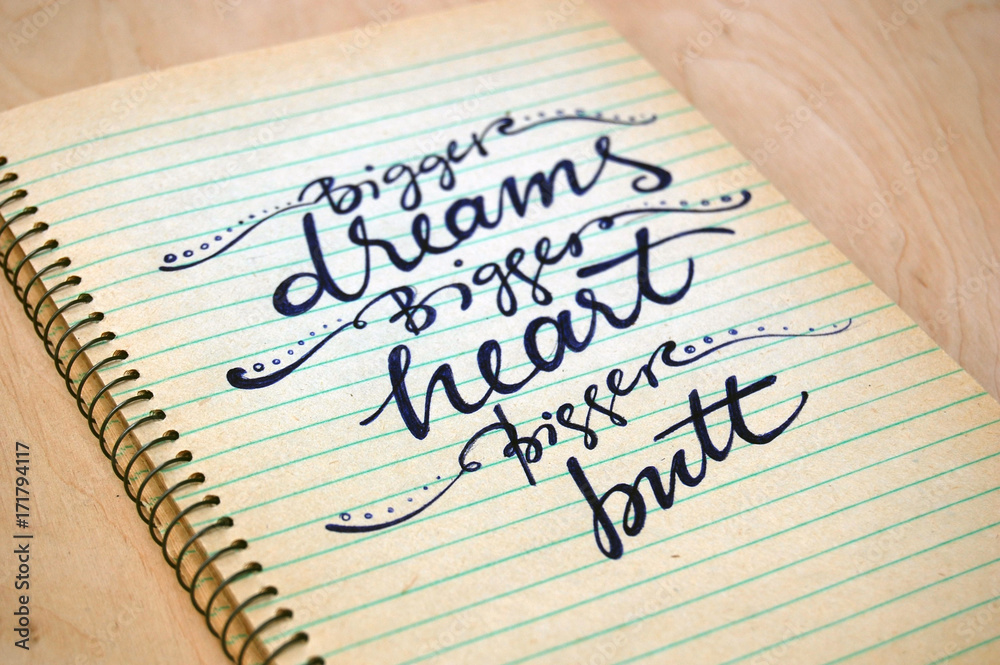 Bigger
dreams
Bigger
heart
Bigger
butt
Adobe Stock | #171794117